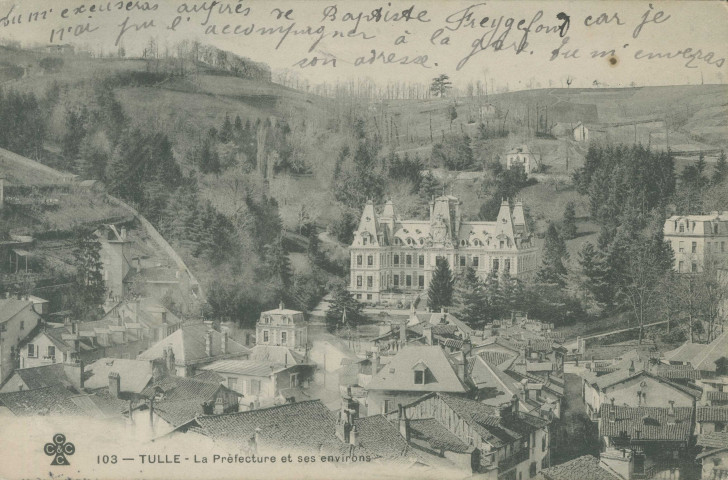 Tu m'excuseras auprès de Baptiste Freygefond car je
n'ai pu l'accompagner à la gare. Tu m'enverras
son adresse.
103 — TULLE - La Préfecture et ses environs